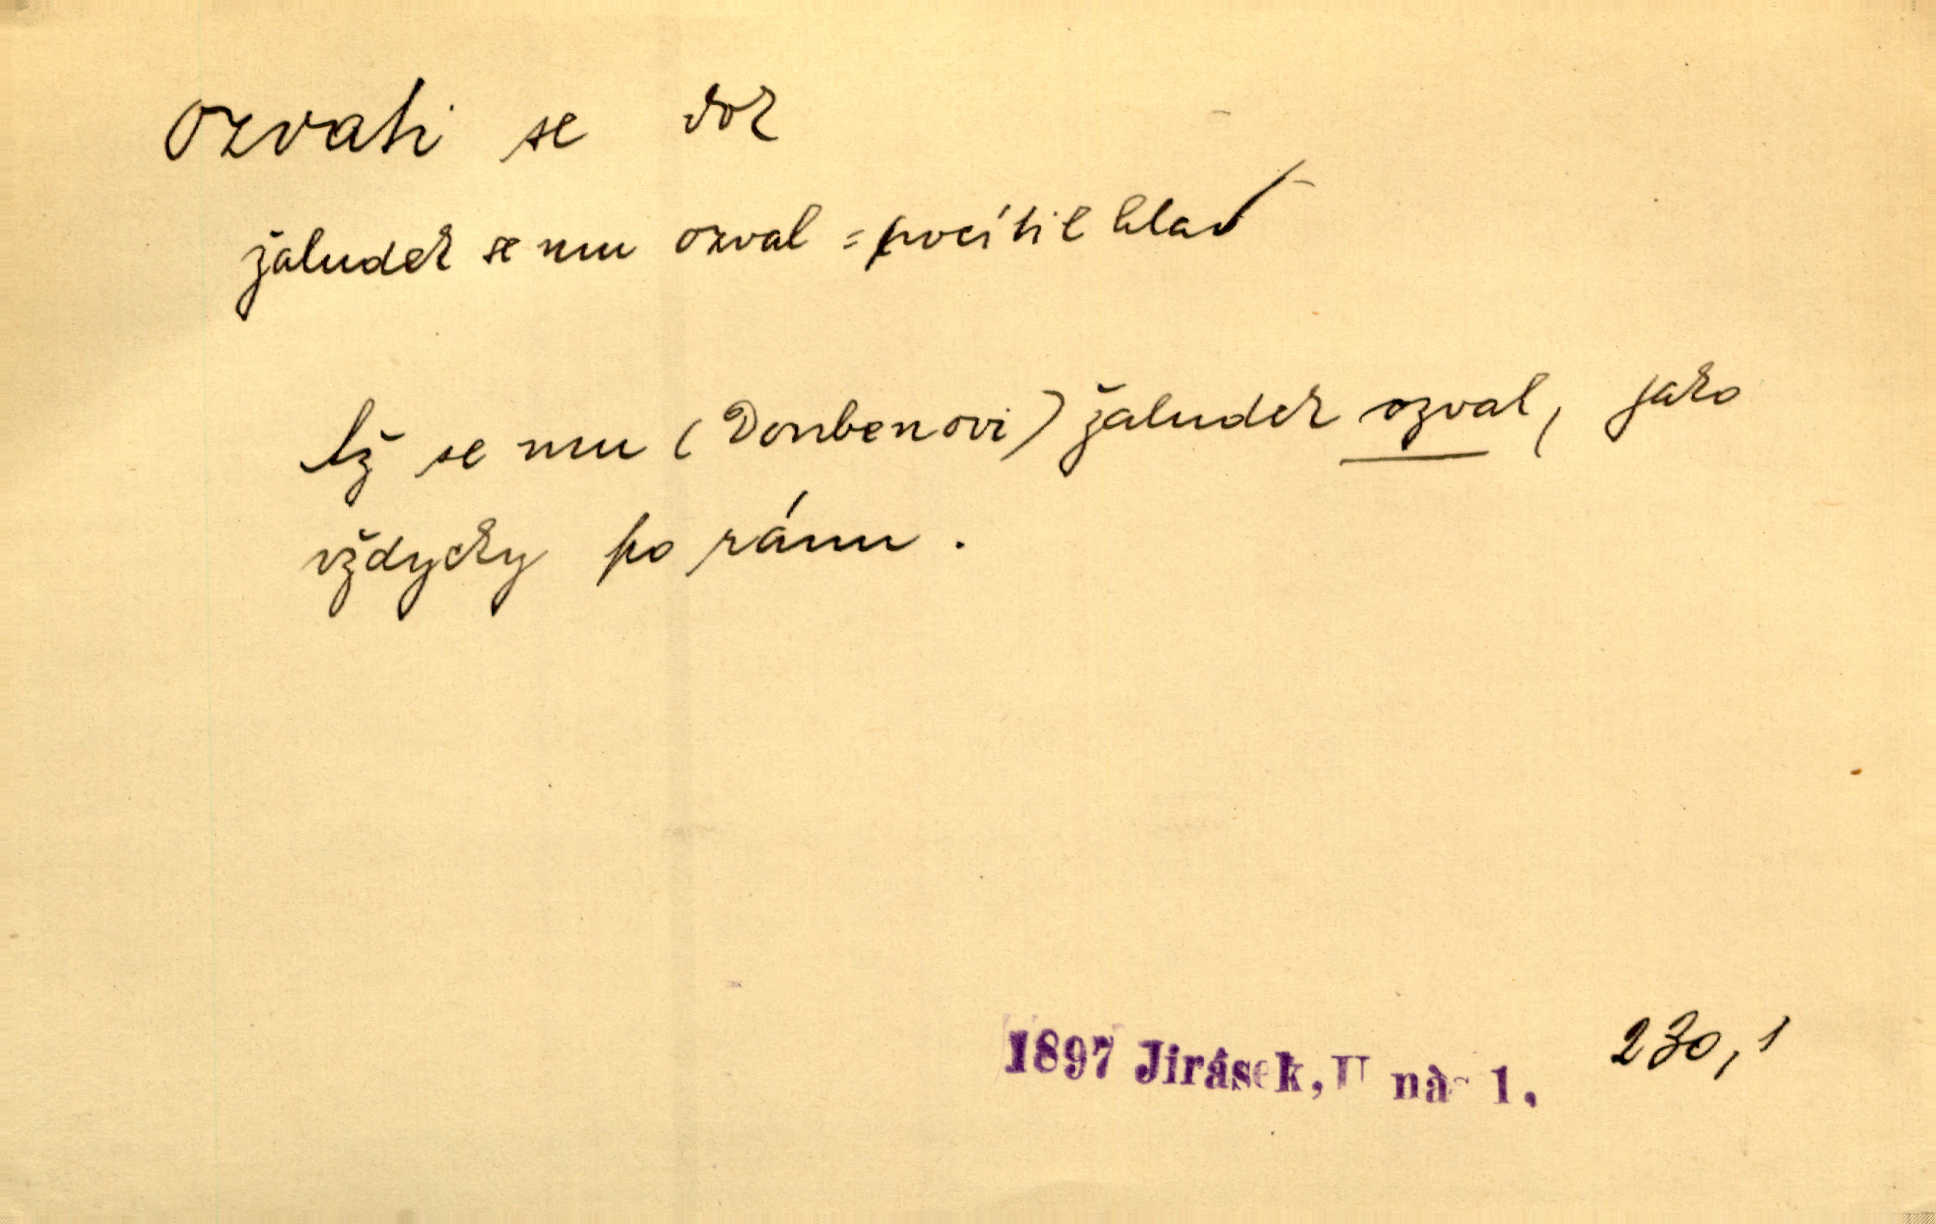 ozvati se dok
žaludek se mu ozval = pocítil hlad
Až se mu (Doubenovi) žaludek ozval, jako
vždycky po ránu.
1897 Jirásek, U nás 1. 230,1